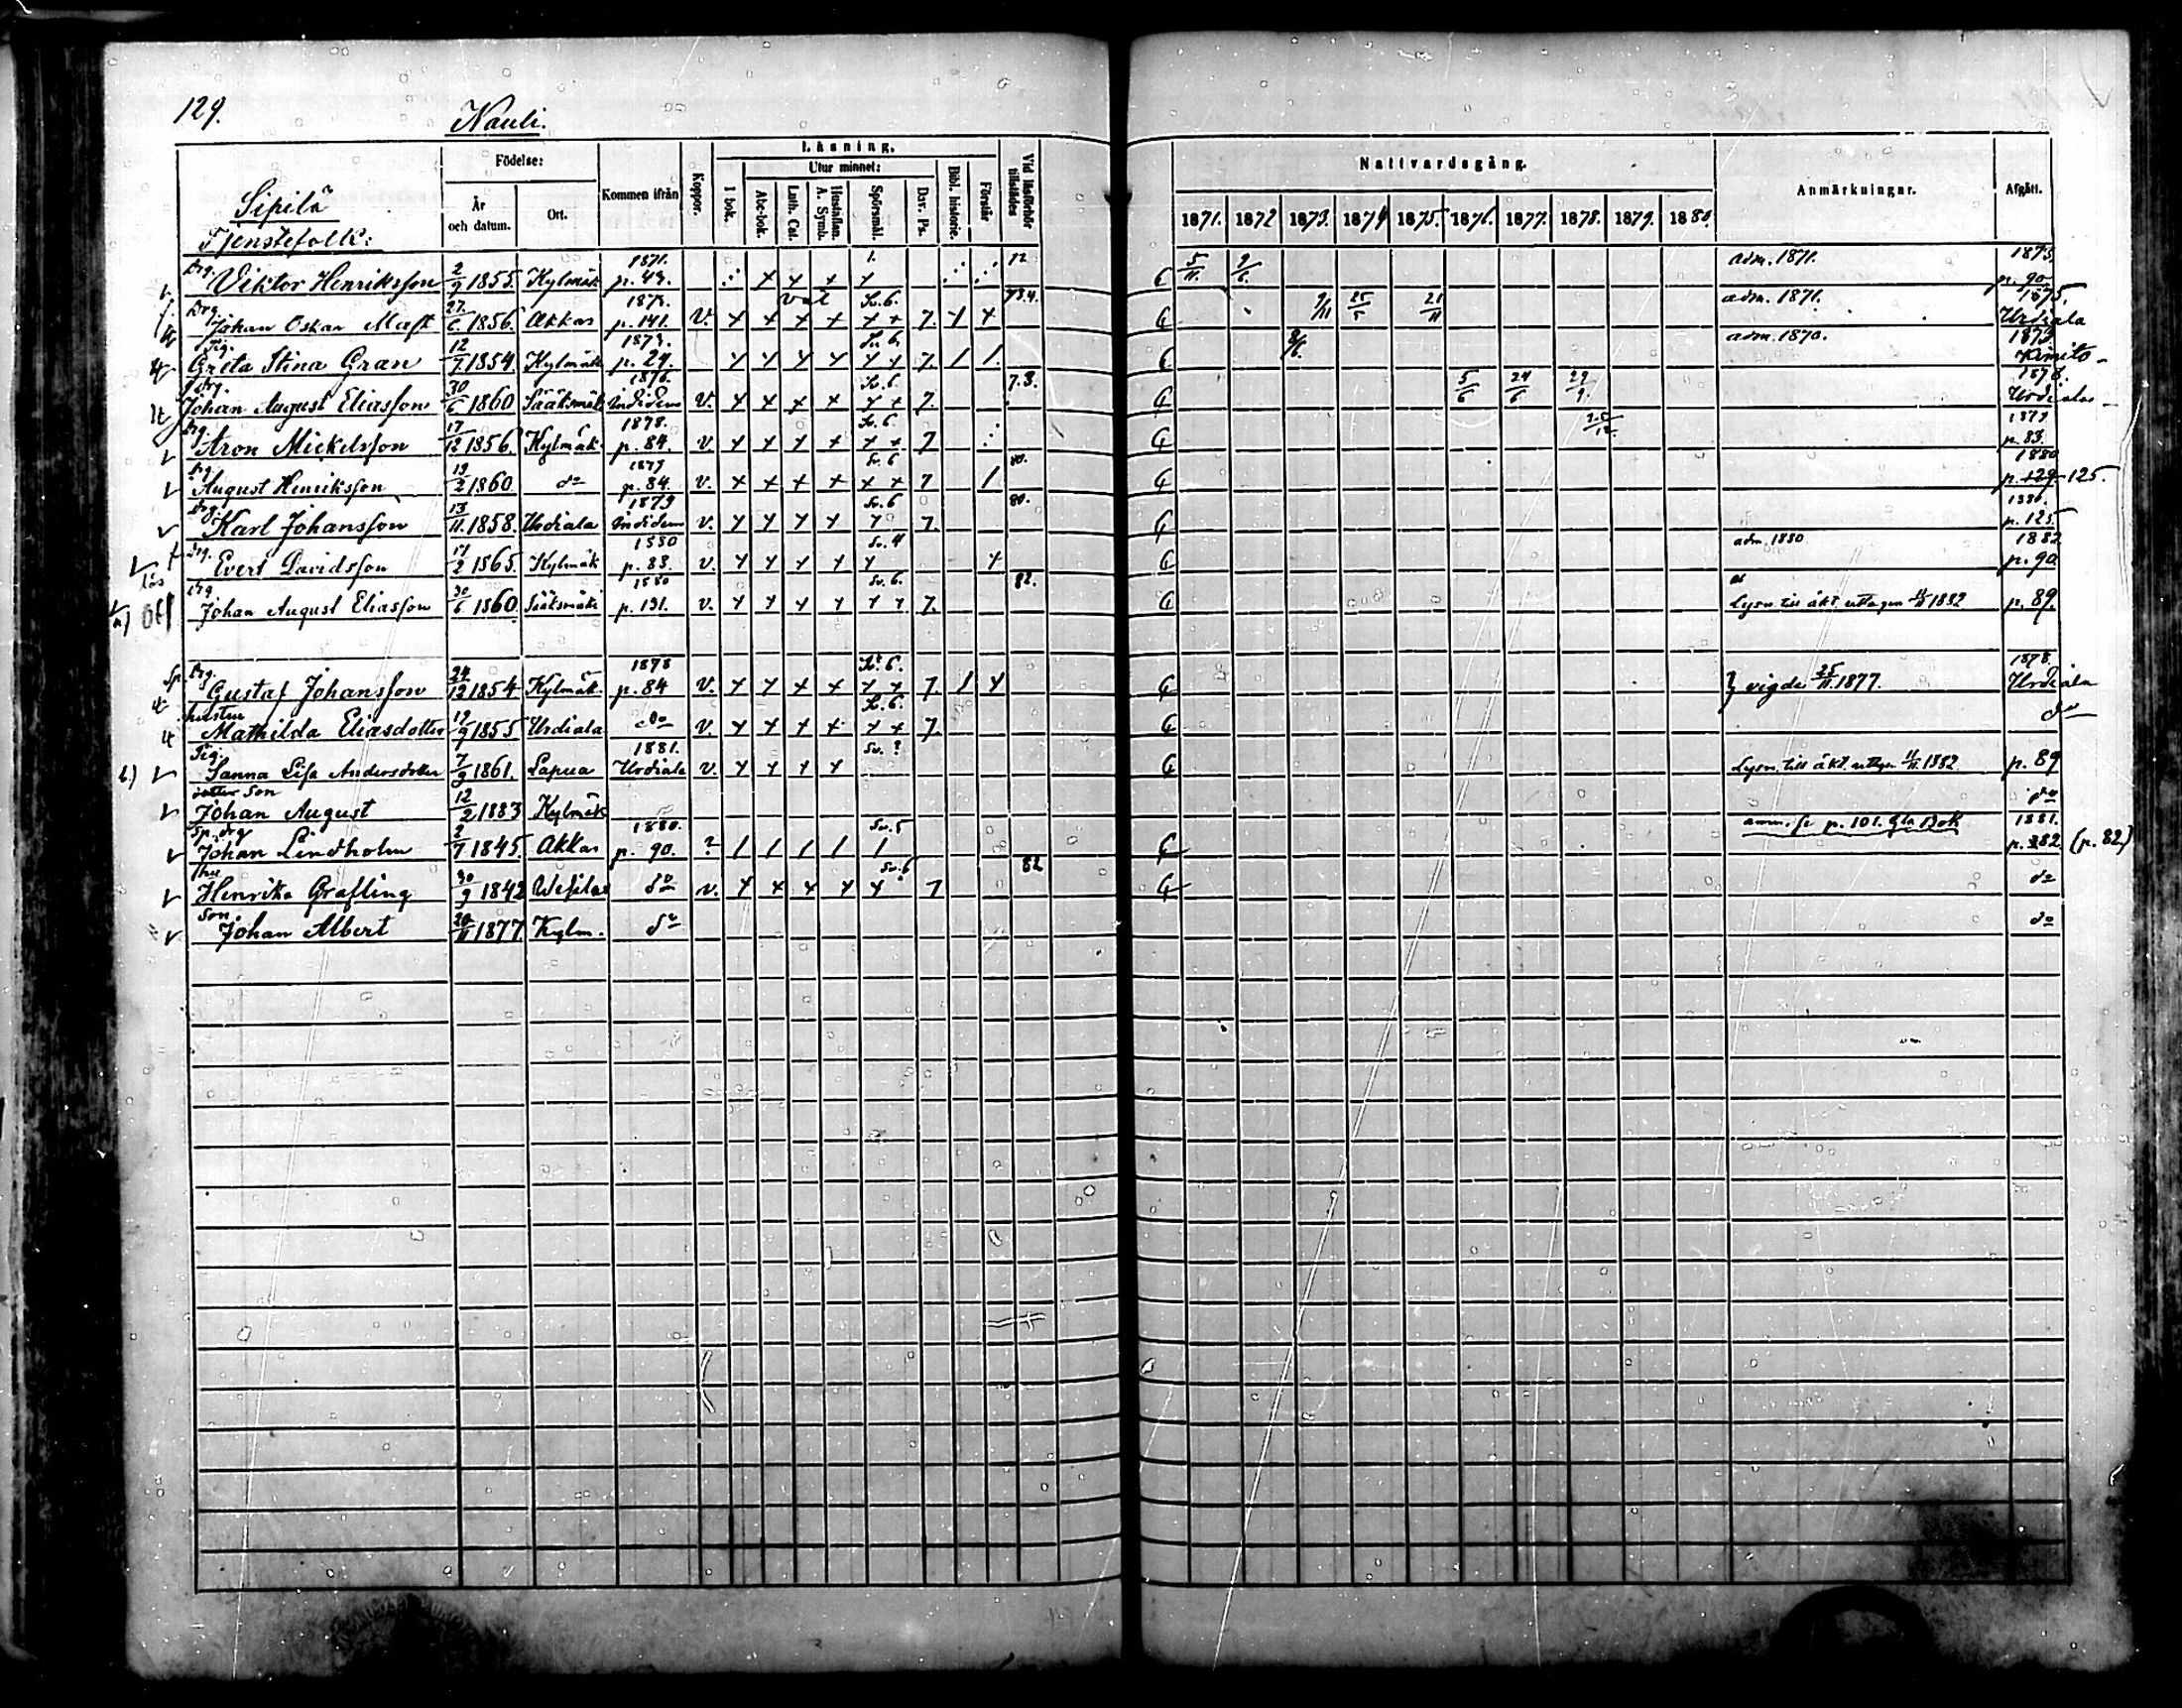 129.
Nauli.
Sipilä
Tjenstefolk:
Födelse:
År och datum.
Ort.
Kommen ifrån
Koppor.
Läsning.
I bok.
Utur minnet:
Abc-bok.
Luth. Cat.
Hustaflan. A. Symb.
Spörsmål.
Dav. Ps.
Bibl. historie.
Förstår
Vid läsförhör tillstädes
Nattvardsgång.
1871. 1872 1873. 1874 1875. 1876. 1877. 1878. 1879. 1880.
Anmärkningar.
Afgått.
Drg. Viktor Henriksson 2/9 1855. Kylmäk 1871. p. 43. 1. 12 5/11. 9/6. adm. 1871. 1873, p. 90
Drg. Johan Oskar 27/6 1856. Akkas 1873. p. 141. v. Sv. 6. 7. 73.4. 9/11 25/5 21/11 adm. 1871. 1875, Urdiala
Pig. Greta Stina Gran 12/7 1854. Kylmäk 1873. p. 29. Sv. 6. 7. 8/6. adm. 1870. 1873 Kimito
Drg. Johan August Eliasson 30/6 1860 Sääksmäk 1876. v. Sv. 6. 7. 7.8. 5/6 24/6 29/9. 1878. Urdiala
Drg. Aron Mickelsson 17/12 1856. Kylmäk. 1878. p. 84. v. Sv. 6. 7 1879 p. 83.
Drg. August Henriksson 19/2 1860. do 1879 p. 84. v. Sv. 6 7 80. 1880 p. 129 125.
Drg. Karl Johansson 13/11. 1858. Urdiala 1879 v. Sv. 6 7. 80. 1880. p. 125
Drg. Evert Davidsson 17/2 1865. Kylmäk 1880 p. 83. v. Sv. 4 adm. 1880 1882 p. 90.
Drg Johan August Eliasson 30/6 1860. Sääksmäki 1880 p. 131. v. Sv. 6. 7. 82. Lysn. till äkt. uttagen 11/11 1882 p. 89.
Sp. Drg. Gustaf Johansson 24/12 1854 Kylmäk. 1878 p. 84 v. Sv. 6. 7. vigde 25/11. 1877. 1878. Urdiala
hustru Mathilda Eliasdotter 19/9 1855 Urdiala do v. Sv. 6. 7. do
Pig. Sanna Lisa Andersdotter 7/9 1861. Lapua 1881. Urdiala v. Sv. ? Lysn. till äkt. uttag. 11/11. 1882 p. 89
son Johan August 12/2 1883 Kylmäk do
Sp. drg Johan Lindholm 2/7 1845. Akkas 1880. p. 90. ? Sv. 5 anm. se p. 101. Gla Bok 1881. p. 382. (p. 82)
Hu Henrika Grafling 30/9 1842 do v. Sv. 6 7 82 do
Son Johan Albert 20/11 1877 Kylm. do do